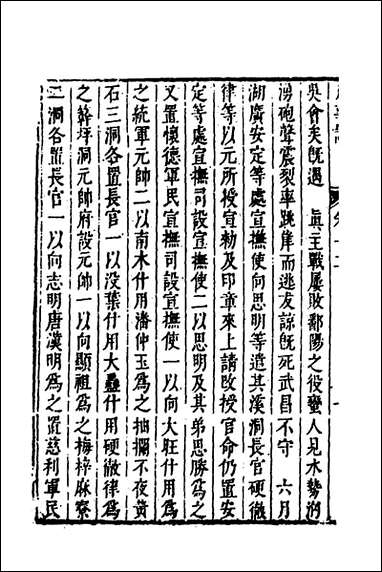 吳會矣旣遇　眞主戰屢敗鄱陽之役蠻人見水勢洶
湧砲聲震裂率跳岸而逃友諒旣死武昌不守　六月
湖廣安定等處宣撫使向思明等遣其溪洞長官硬徹
律等以元所授宣勅及印章來上請改授官命仍置安
定等處宣撫司設宣撫使二以思明及其弟思勝爲之
又置懷德軍民宣撫司設宣撫使一以向大旺什用爲
之統軍元帥二以南木什用潘仲玉爲之抽攔不夜黃
石三洞各置長官一以没葉什用大蟲什用硬徹律爲
之簳坪洞元帥府設元帥一以向顯祖爲之梅梓麻寮
二洞各置長官一以向志明唐漢明爲之置慈利軍民